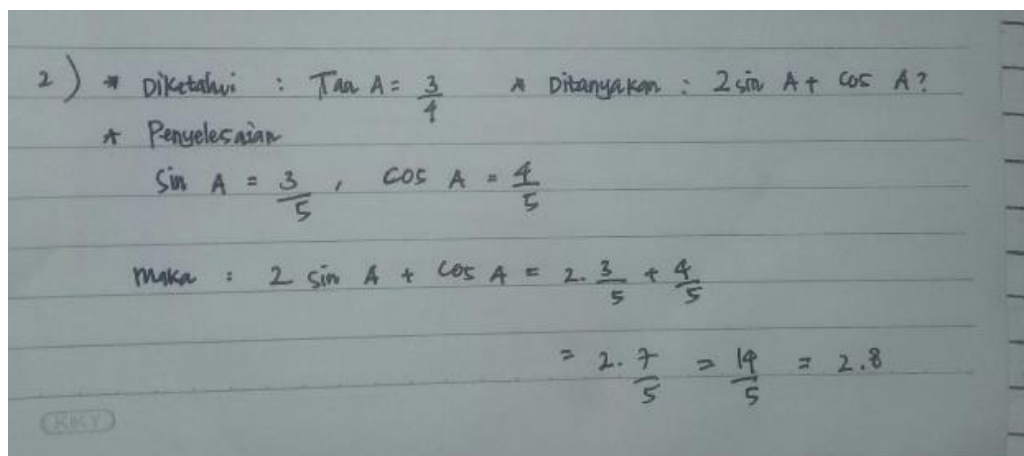 2) * Diketahui : Tan A = 3/4 * Ditanyakan : 2 sin A + cos A?
* Penyelesaian
Sin A = 3/5, cos A = 4/5
Maka : 2 sin A + cos A = 2. 3/5 + 4/5
= 2. 7/5 = 14/5 = 2.8
KIKY